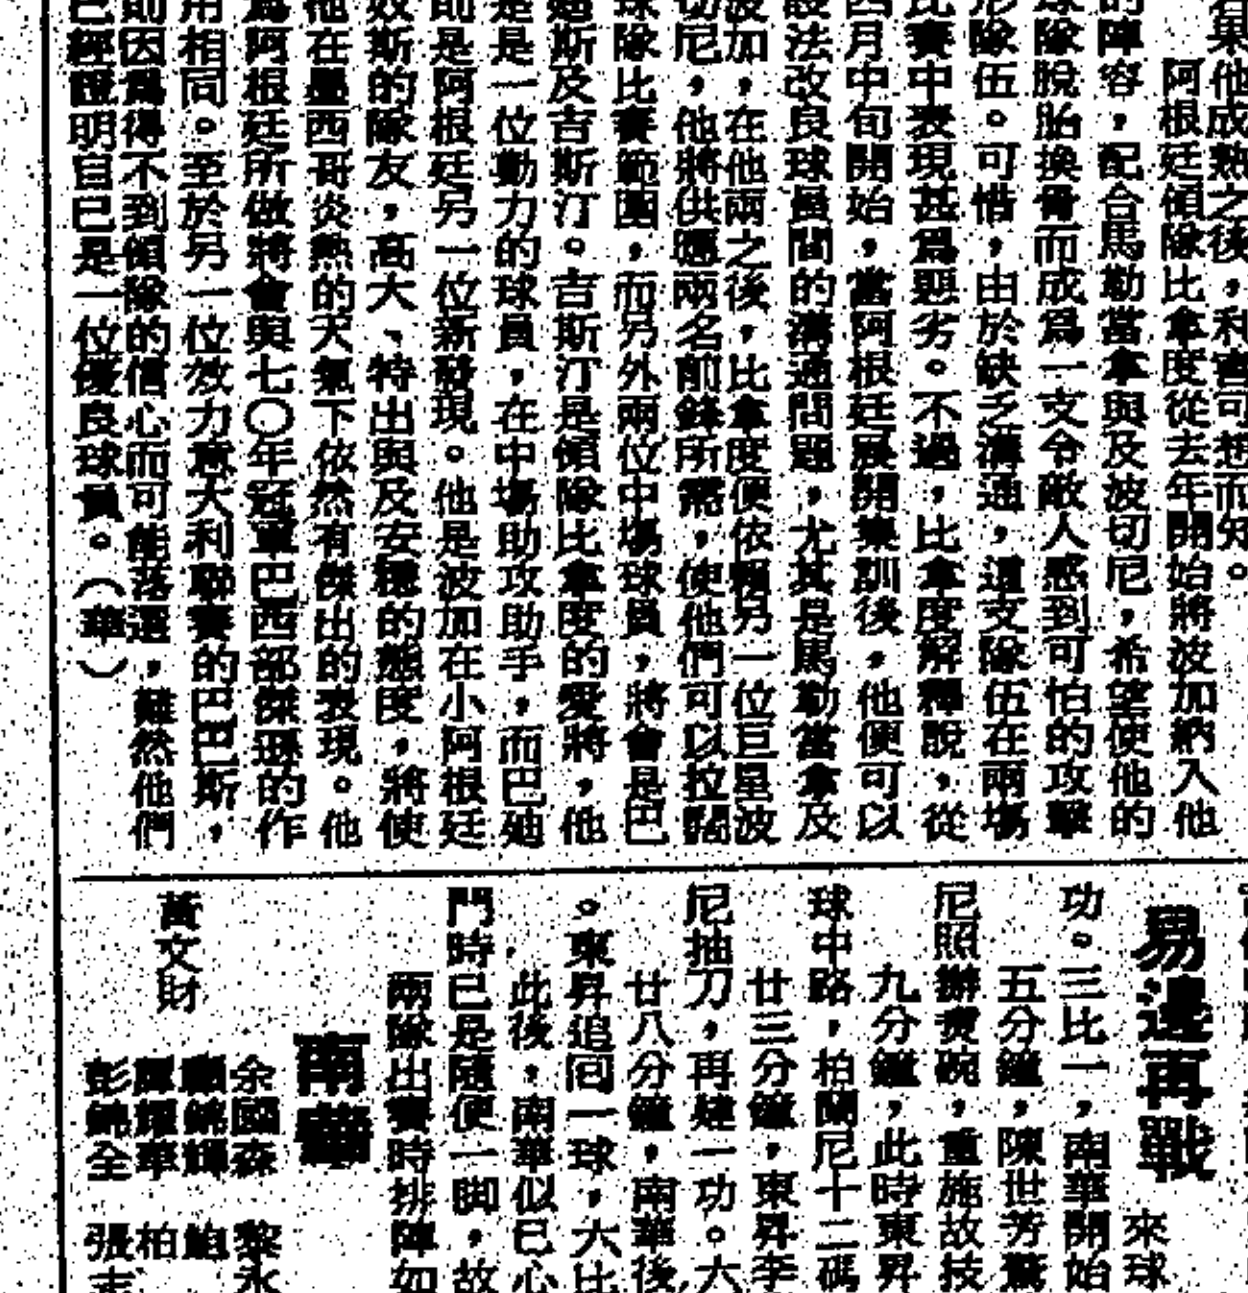 若果他成熟之後，利害可想而知。
阿根廷領隊比拿度從去年開始將波加納入他
的陣容，配合馬勒當拿與及波切尼，希望使他的
球隊脫胎換骨而成爲一支令敵人感到可怕的攻擊
形隊伍。可惜，由於缺乏溝通，這支隊伍在兩場
比賽中表現甚爲惡劣。不過，比拿度解釋說，從
四月中旬開始，當阿根廷展開集訓後，他便可以
設法改良球員間的溝通問題，尤其是馬勒當拿及
波加，在他兩之後，比拿度便依賴另一位巨星波
切尼，他將供應兩名前鋒所需，使他們可以拉闊
球隊比賽範圍，而另外兩位中場球員，將會是巴
廸斯及吉斯汀。吉斯汀是領隊比拿度的愛將，他
是是一位動力的球員，在中場助攻助手，而巴廸
則是阿根廷另一位新發現。他是波加在小阿根廷
奴斯的隊友，高大、特出與及安穩的態度，將使
他在墨西哥炎熱的天氣下依然有傑出的表現。他
爲阿根廷所做將會與七〇年冠軍巴西部傑遜的作
用相同。至於另一位效力意大利聯賽的巴巴斯，
則因爲得不到領隊的信心而可能落選，雖然他們
已經證明自己是一位優良球員。（華）
易邊再戰
來球
功。三比一，南華開始
五分鐘，陳世芳驚
尼照辦煮碗，重施故技
九分鐘，此時東昇
球中路，柏蘭尼十二碼
廿三分鐘，東昇李
尼抽刀，再建一功。六
廿八分鐘，南華後
。東昇追回一球，六比
此後，南華似已心
門時已是隨便一脚，故
兩隊出賽時排陣如
南華
余國森 黎永
顧錦輝 鮑
羅耀華 柏
黃文財
彭錦全 張志